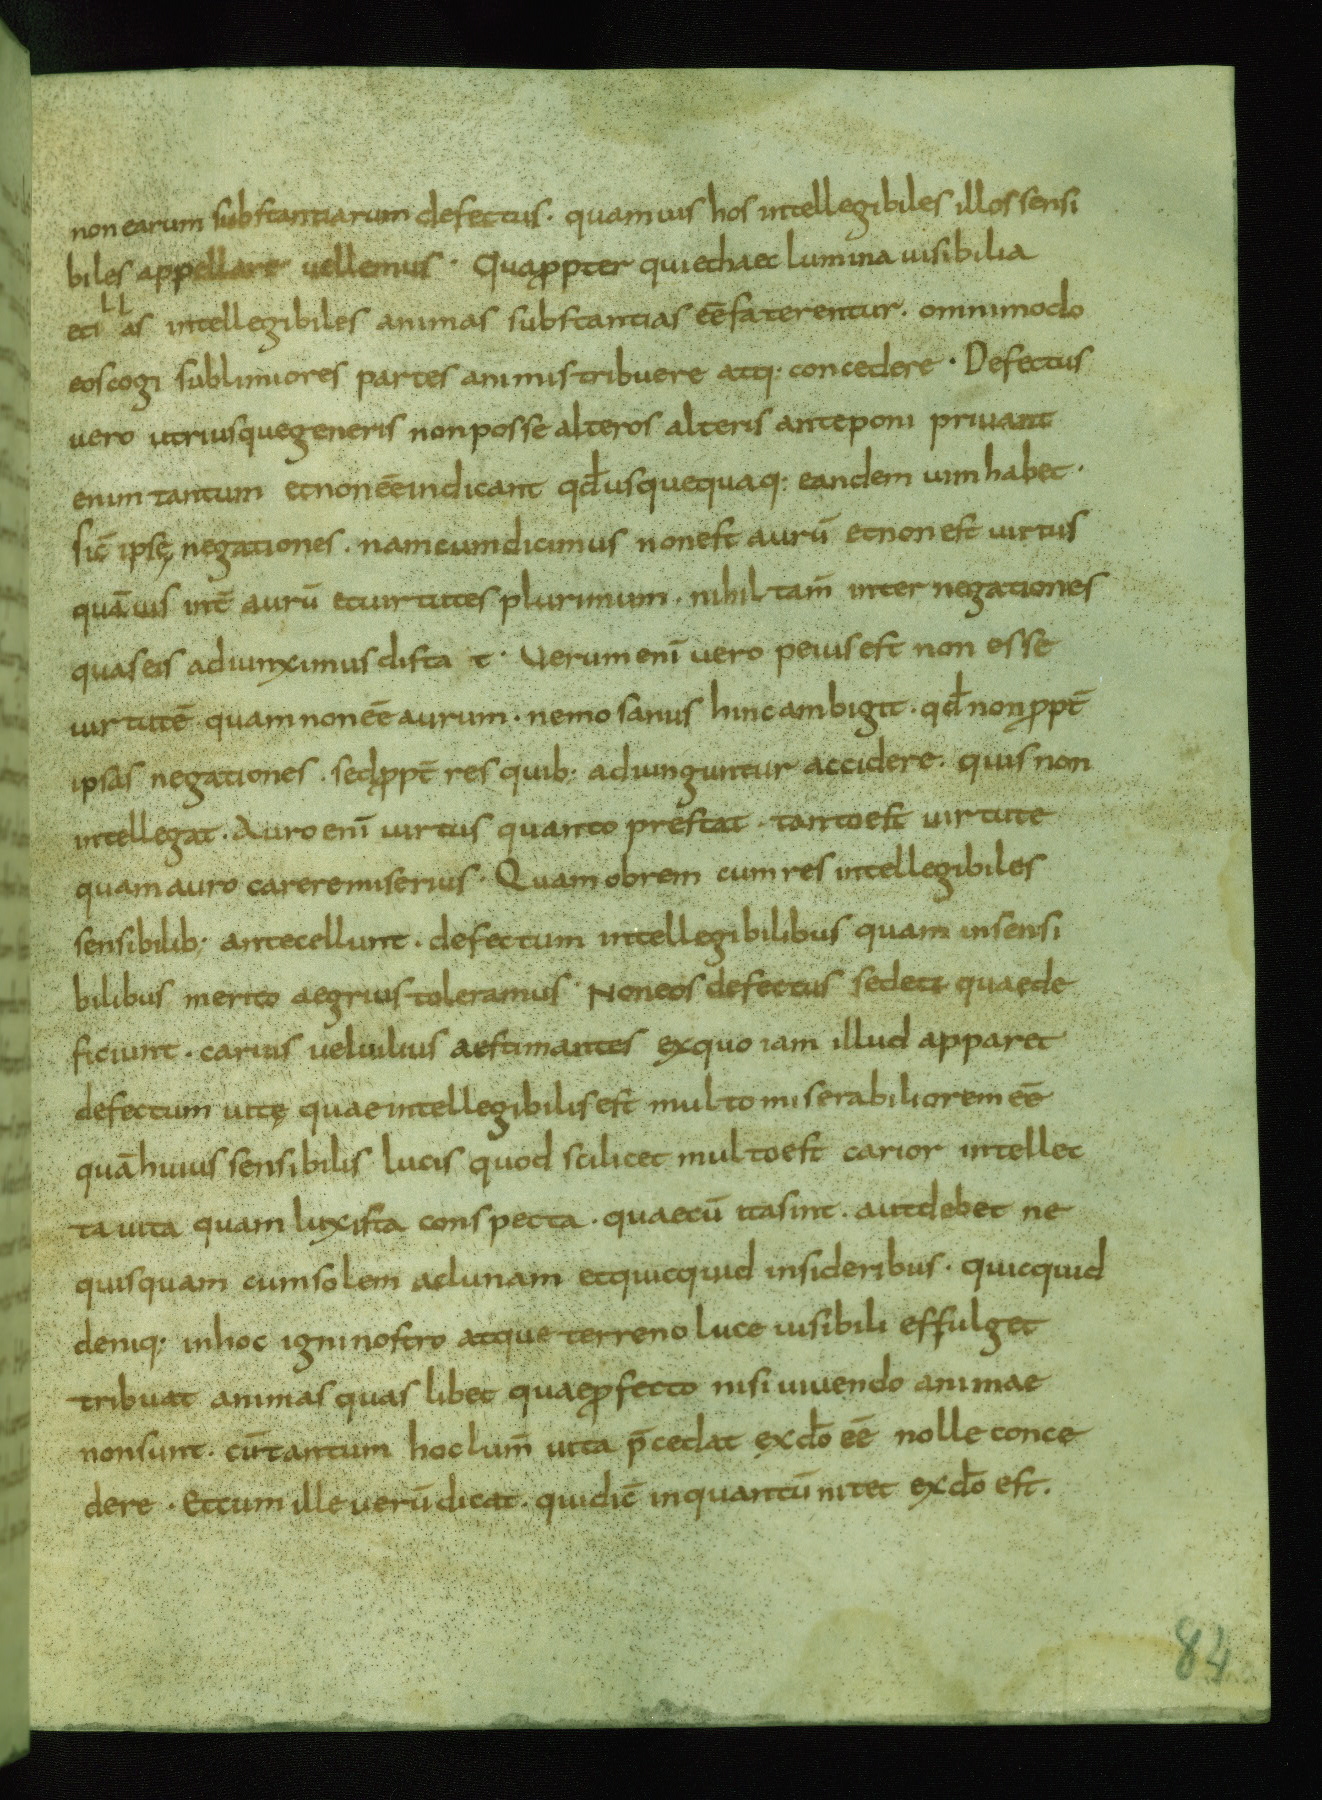 non earum substantiarum defectus · quamuis hos intellegibiles illos sensi
biles appellare uellemus · Quapropter qui et haec lumina uisibilia
et illas intellegibiles animas substantias eē faterentur · omnimodo
eos cogi sublimiores partes animis tribuere atq; concedere · Defectus
uero utriusque generis non posse alteros alteris anteponi priuant
enim tantum et non eē indicant qđ usquequaq; eandem uim habet ·
sic̄ ipsę negationes · nam cum dicimus non est aurū et non est uirtus
quāuis int̄ aurū et uirtutes plurimum · nihil tam̄ inter negationes
quas eis adiunximus dista t · Uerum enī uero peius est non esse
uirtutē quam non eē aurum · nemo sanus hinc ambigit · qđ non ꝓpt̄
ipsas negationes · sed ꝓpt̄ res quib; adiunguntur accidere · quis non
intellegat · Auro enī uirtus quanto prestat · tanto est uirtute
quam auro carere miserius · Quam obrem cum res intellegibiles
sensibilib; antecellunt · defectum intellegibilibus quam in sensi
bilibus merito aegrius toleramus · Non eos defectus sed ea quae de
ficiunt · carius uel uilius aestimantes ex quo iam illud apparet
defectum uitę quae intellegibilis est multo miserabiliorem eē
quā huius sensibilis lucis quod scilicet multo est carior intellec
ta uita quam lux ista conspecta · quae cū ita sint · aut debet ne
quisquam cum solem ac lunam et quicquid in sideribus · quicquid
deniq; in hoc igni nostro atque terreno luce uisibili effulget
tribuat animas quas libet quae ꝓfecto nisi uiuendo animae
non sunt · cū tantum hoc lum̄ uita p̄cedat ex dō eē nolle conce
dere · Et cum ille uerū dicat · qui dic̄ inquantū nitet ex dō est ·
84